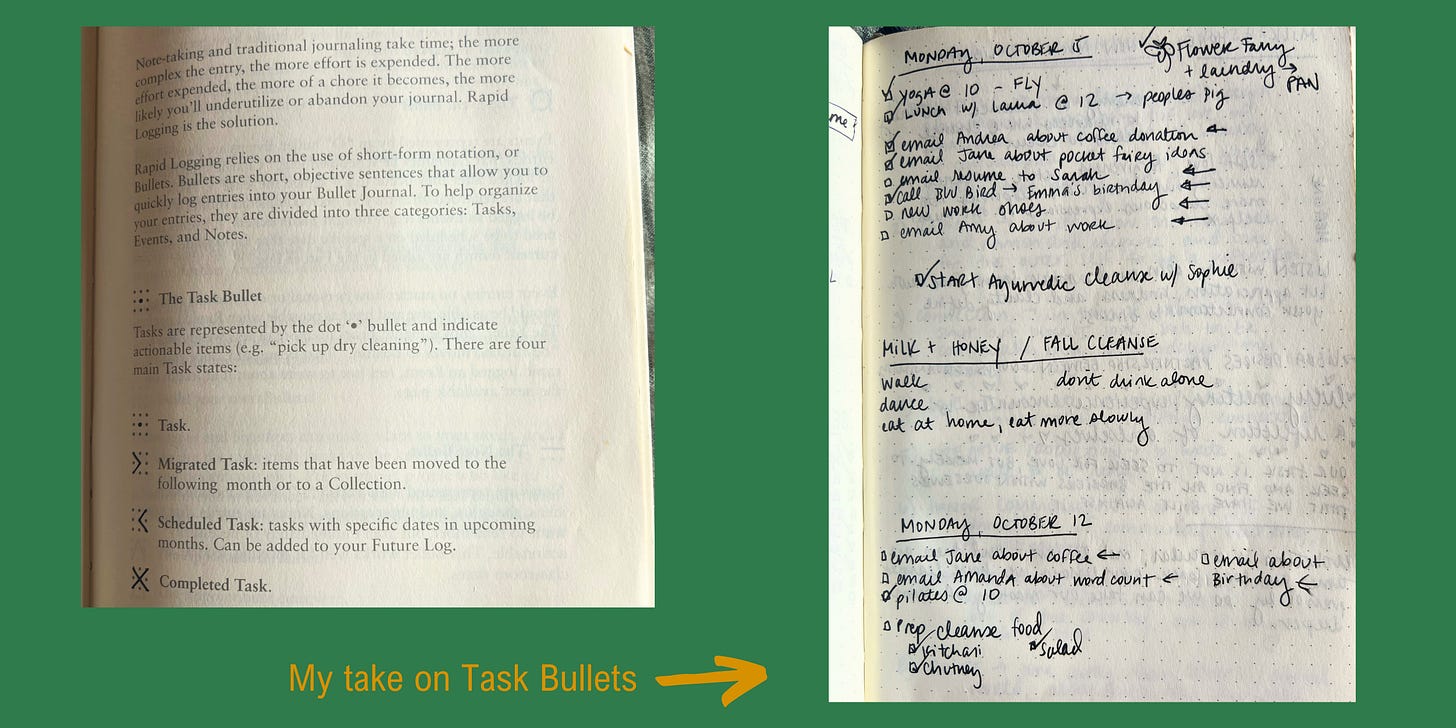 Note-taking and traditional journaling take time; the more
complex the entry, the more effort is expended. The more
effort expended, the more of a chore it becomes, the more
likely you'll underutilize or abandon your journal. Rapid
Logging is the solution.
Rapid Logging relies on the use of short-form notation, or
Bullets. Bullets are short, objective sentences that allow you to
quickly log entries into your Bullet Journal. To help organize
your entries, they are divided into three categories: Tasks,
Events, and Notes.
The Task Bullet
Tasks are represented by the dot ‘•’ bullet and indicate
actionable items (e.g. “pick up dry cleaning”). There are four
main Task states:
Task.
Migrated Task: items that have been moved to the
following month or to a Collection.
Scheduled Task: tasks with specific dates in upcoming
months. Can be added to your Future Log.
Completed Task.
My take on Task Bullets
me
MONDAY, OCTOBER 5
Flower Fairy
+ laundry →
PAN
yogA @ 10 - FLY
LUNCH w/ Laura @ 12 → peoples pig
email Andrea about coffee donation ←
email Jane about pocket fairy ideas
email resume to Sarah ←
call BW Bird → Emma's birthday ←
new work shoes ←
email Amy about work ←
START Ayurvedic cleanse w/ Sophie
MILK + HONEY / FALL CLEANSE
walk
don't drink alone
dance
eat at home, eat more slowly
MONDAY, OCTOBER 12
email Jane about coffee ←
email about
email AmANdA about word count ←
Birthday ←
pilates @ 10
Prep cleanse food
kitchari
Salad
Chutney